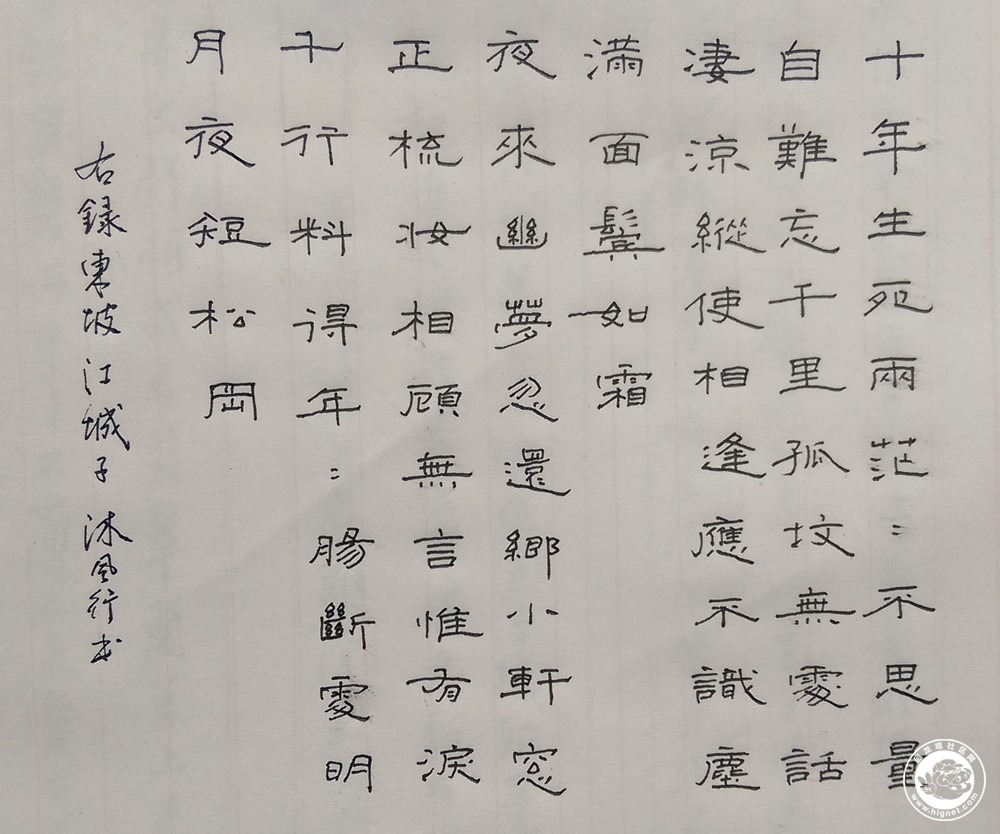 十年生死兩茫：不思量
自難忘千里孤墳無處話
淒涼縱使相逢應不識塵
滿面鬢如霜
夜來幽夢忽還鄉小軒窓
正梳妝相顧無言惟有淚
千行料得年：腸斷處明
月夜短松岡
右録東坡江城子 沐風行书
回龙观社区网
www.hlgnet.com